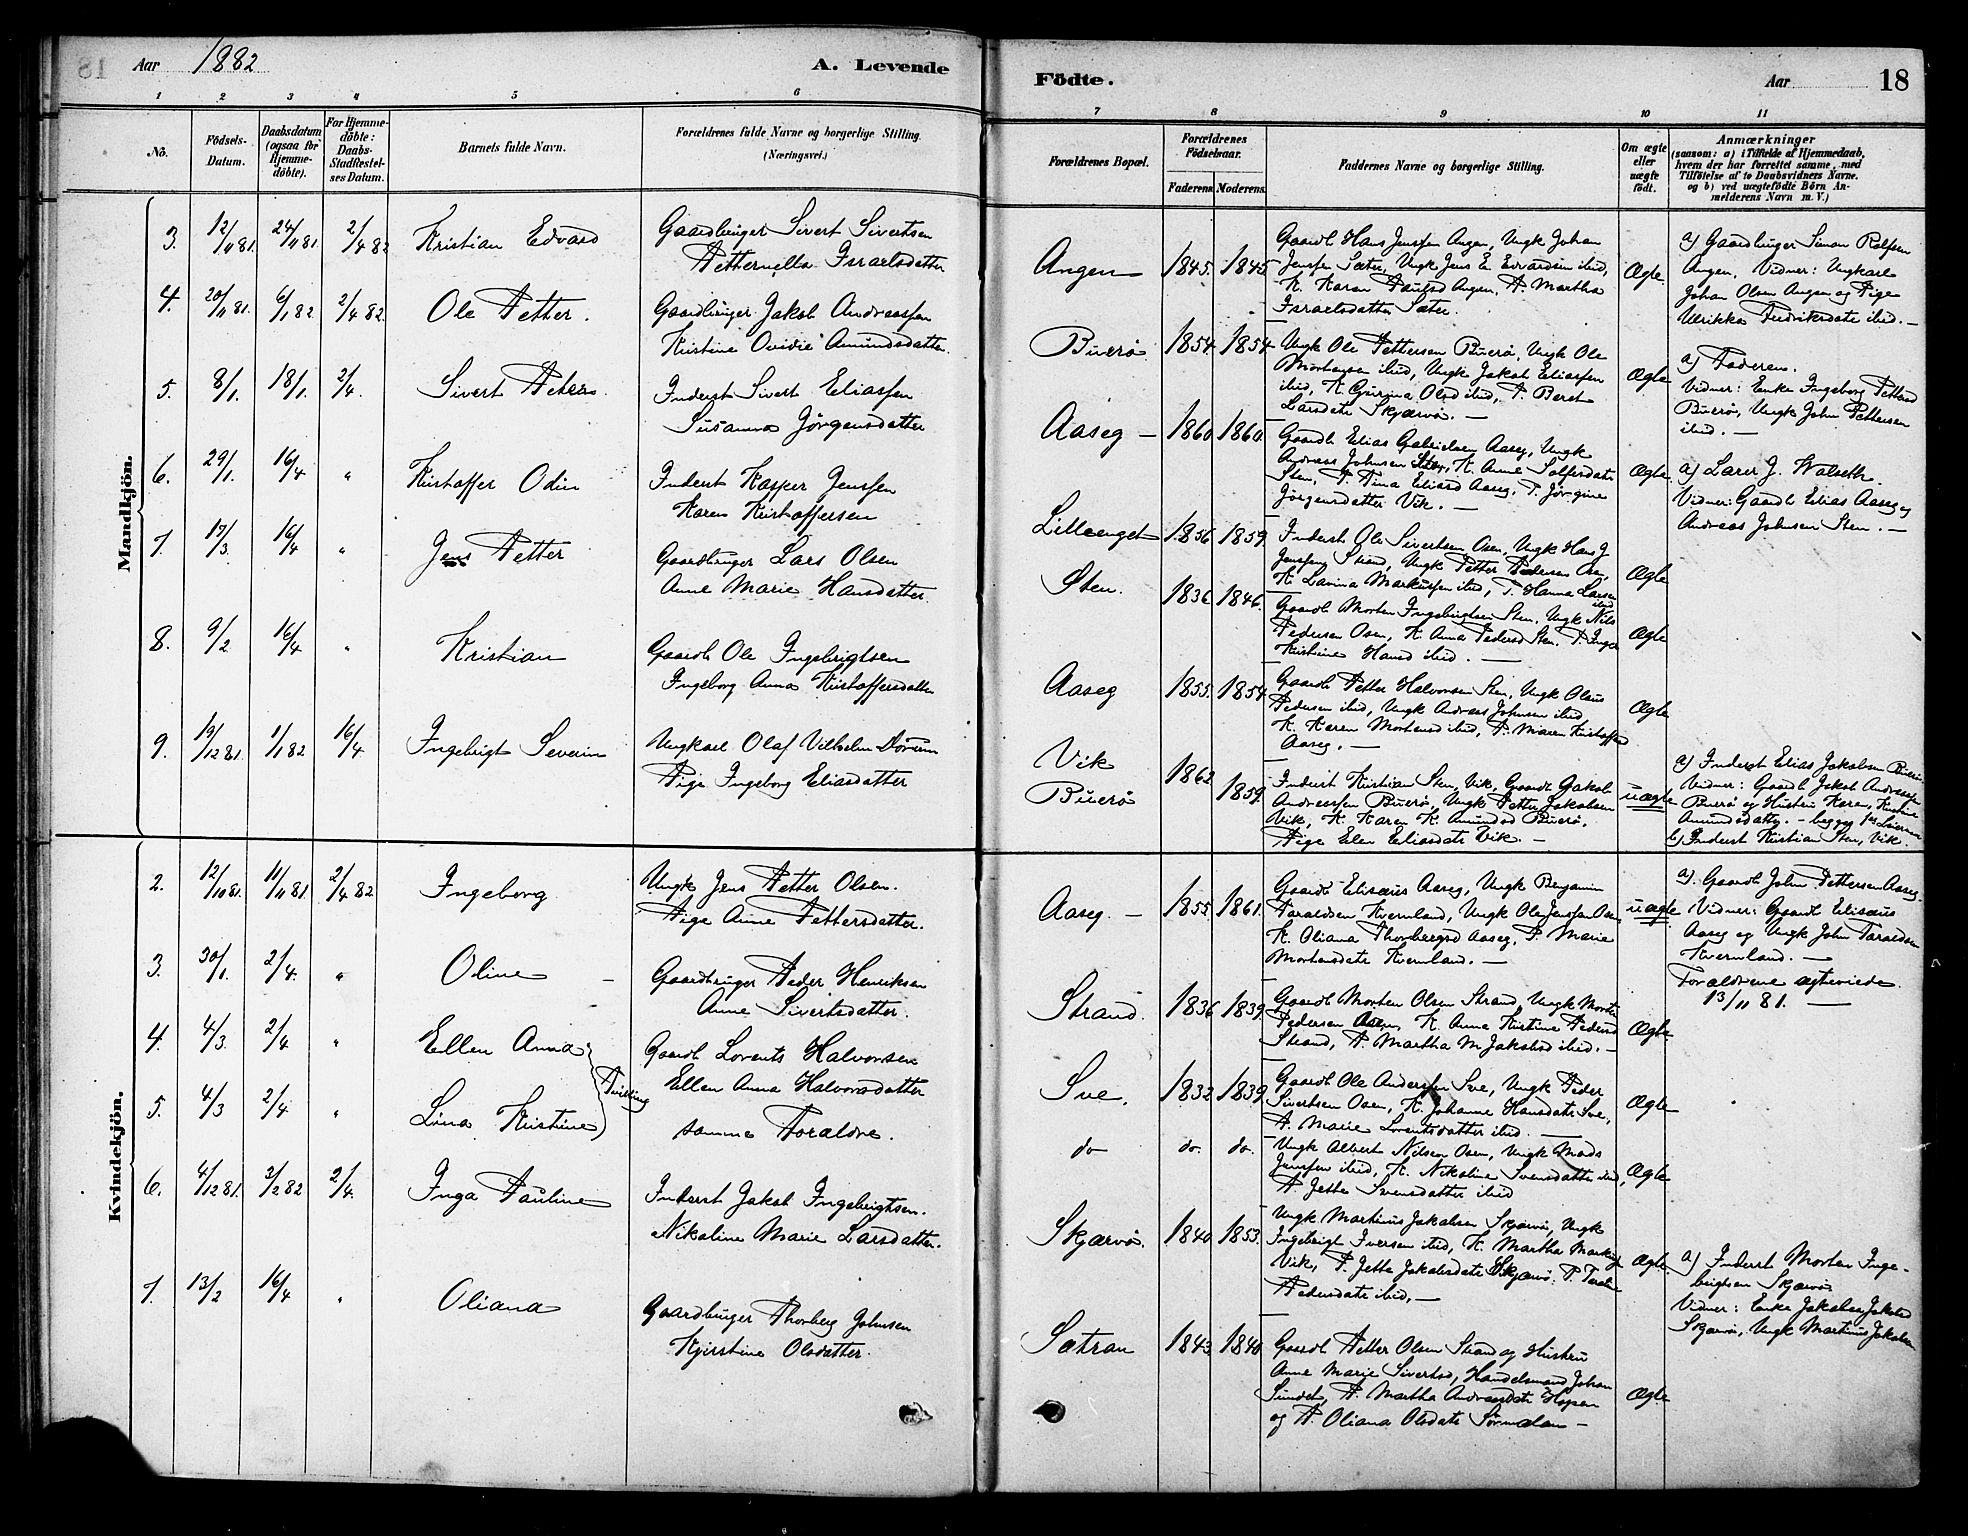 Aar 1882
A. Levende
Födte.
Aar 18
1 2 3 4 5 6 7 8 9 10 11
No.
Födsels-Datum.
Daabsdatum (ogsaa for Hjemme-döbte).
For Hjemme-döbte: Daabs-Stadfestel-ses Datum.
Barnets fulde Navn.
Forældrenes fulde Navne og borgerlige Stilling.
(Næringsvei.)
Forældrenes Bopæl.
Forældrenes Födselsaar.
Faderens. Moderens.
Faddernes Navne og borgerlige Stilling.
Om ægte eller uægte födt.
Anmærkninger
(saasom: a) i Tilfælde af Hjemmedaab,
hvem der har forrettet samme, med
Tilföielse af to Daabsvidners Navne.
og b) ved uægtefödte Börn An-
melderens Navn m. V.)
Mandkjön.
3. 12/11 81. 24/11 81. 2/4 82 Kristian Edvard
Gaardbruger Sivert Sivertsen
Petternella Israelsdatter
Angen 1845. 1845.
Gaardb Hans Jenssen Angen, Ungk Johan
Jenssen Sæter, Ungk Jens E Edvardsen ibid,
K. Karen Paulsd Angen, P. Martha
Israelsdatter Sæter.
Ægte
a) Gaardbruger Simon Rolfsen
Angen. Vidner: Ungkarl
Johan Olsen Angen og Pige
Ulrikka Fredriksdatr ibid. —
4. 20/11 81. 6/1 82 2/4 82. Ole Petter.
Gaardbruger Jakob Andreassen
Kristine Ovidie Amundsdatter.
Buerö 1854. 1854.
Ungk Ole Pettersen Buerö, Ungk Ole
Mortensen ibid, Ungk Jakob Eliassen
ibid, K Gurina Olsd ibid, P. Beret
Larsdatr Skjærvö. —
Ægte
a) Faderen.
Vidner: Enke Ingeborg Pettersd
Buerö, Ungk John Pettersen
ibid. —
5. 8/1. 18/1. 2/4. Sivert Peter.
Inderst Sivert Eliassen
Susanna Jörgensdatter
Aaseg — 1860. 1860.
Gaardb Elias Gabrielsen Aaseg, Ungk
Andreas Johnsen Sten, K. Anne Solfersdatr
Sten, P. Tina Eliasd Aaseg, P. Jörgine
Jörgensdatter Vik. —
Ægte
a) Lærer J. Walseth.
Vidner: Gaardb Elias Aaseg og
Andreas Johnsen Sten. —
6. 29/1. 16/4 " Kristoffer Odin
Inderst Kasper Jenssen
Karen Kristoffersen
Lilleenget 1856. 1859.
Inderst Ole Sivertsen Osen, Ungk Hans J
Jenssen Strand, Ungk Petter Pedersen Osen,
K. Lavina Markussen ibid, P. Hanna Larsen
ibid
Ægte
7. 17/3. 16/4 " Jens Petter
Gaardbruger Lars Olsen
Anne Marie Hansdatter.
Sten. 1836. 1846.
Gaardb Morten Ingebrigtsen Sten, Ungk Nils
Pedersen Osen, K. Anna Pedersd Sten. P. Inger
Kristine Hansd ibid. —
Ægte
8. 9/2 16/4 " Kristian
Gaardb Ole Ingebrigtsen
Ingeborg Anna Kristoffersdatter
Aaseg 1855. 1854.
Gaardb Petter Halvorsen Sten, Ungk Olaus
Pedersen ibid, Ungk Andreas Johnsen ibid
K. Karen Mortensd ibid, P. Maren Kristoffersd
Aaseg. —
Ægte
9. 19/12 81. 1/1 82 16/4 Ingebrigt Severin
Ungkarl Olaf Vilhelm Dorum
Pige Ingeborg Eliasdatter
Vik
Buerö
1862 1859.
Inderst Kristian Sten, Vik, Gaardb Jakob
Andreassen Buerö, Ungk Petter Jakobsen
Vik, K. Karen K. Amundsd Buerö,
Pige Elen Eliasdatr Vik. —
uægte
a) Inderst Elias Jakobsen Buerö.
Vidner: Gaardb Jakob Andreassen
Buerö og Hustru Karen Kristine
Amundsdattr. — begges
b) Inderst Kristian Sten, Vik
Kvindekjön.
2. 12/10 81. 11/11 81 2/4 82 Ingeborg
Ungk Jens Petter Olsen.
Pige Anne Pettersdatter.
Aaseg. — 1855. 1861.
Gaardb Elisæus Aaseg, Ungk Benjamin
Taraldsen Kvernland, Ungk Ole Jenssen Osen
K. Oliana Thorbergsd Aaseg, P. Marie
Mortensdatr Kvernland. —
uægte
a). Gaardb John Pettersen Aaseg.
Vidner: Gaardb Elisæus
Aaseg og Ungk John Taraldsen
Kvernland. —
Forældrene ægteviede
13/11 81. —
3. 30/1. 2/4. " Oline —
Gaardbruger Peder Henriksen
Anne Sivertsdatter.
Strand. 1836 1839.
Gaardb Morten Olsen Strand, Ungk Morten
Pedersen Osen, K. Anna Kristine Pedersd
Strand, P. Martha M Jakobsd ibid. —
Ægte
4. 4/3. 2/4 " Ellen Anna
Gaardb Lorents Halvorsen
Ellen Anna Halvorsdatter
Sve. 1832 1839.
Gaardb Ole Anderssen Sve, Ungk Peder
Sivertsen Osen, K. Johanne Hansdatr Sve,
P. Marie Lorentsdatter ibid. —
Ægte
5. 4/3 2/4 " Lina Kristine
Tvilling
samme Foraldre.
do do. do.
Ungk Albert Nilsen Osen, Ungk Mads
Jenssen ibid, K. Nikoline Svensdatter ibid,
P. Jette Svensdatter ibid
Ægte
6. 4/12 81. 3/2 82 2/4. Inga Pauline
Inderst Jakob Ingebrigtsen.
Nikoline Marie Larsdatter.
Skjærvö. 1840 1853.
Ungk Martinus Jakobsen Skjærvö, Ungk
Ingebrigt Iversen ibid, K. Martha Markusd
Vik, P. Jette Jakobsdatr Skjærvö. P.
Pedersdatr ibid, —
Ægte.
a) Inderst Morten Inge-
brigtsen Skjærvö
Vidner: Enke Jakobea Jakobsd
Skjærvö, Ungk Martinus Jakobsen
7. 13/2 16/4 " Oliana
Gaardbruger Thorberg Johnsen
Kjerstine Olsdatter.
Sætran 1843 1840.
Gaardb Petter Olsen Strand og Hustru
Anne Marie Sivertsd, Handelsmand Johan
Sundet, P. Martha Andreasdatr Hopen
og P. Oliana Olsdatr Sörmelan —
Ægte